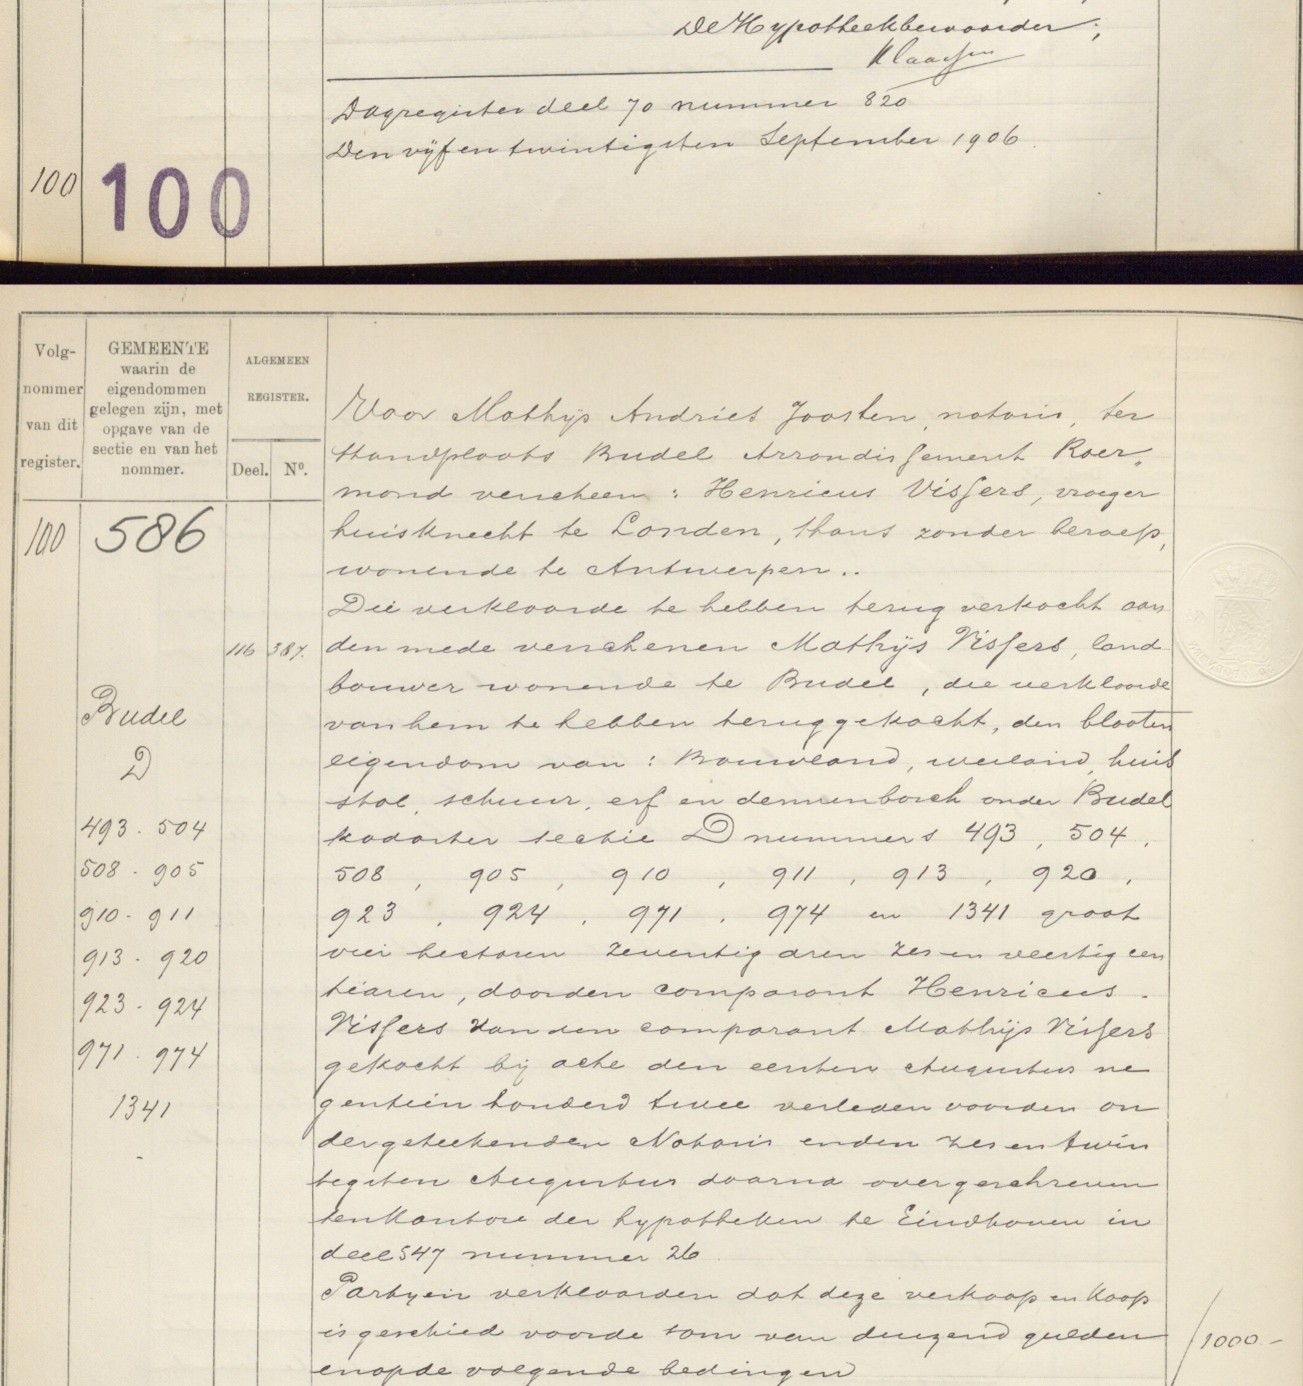 De Hypotheekbewaarder,
Klaassen
Dagregister deel 70 nummer 820
Den vijfentwintigsten September 1906.
100
100
Volg-
nommer
van dit
register.
GEMEENTE
waarin de
eigendommen
gelegen zijn, met
opgave van de
sectie en van het
nommer.
ALGEMEEN
REGISTER.
Deel.
No.
100
586
116 387.
Budel
D
493 - 504
508 - 905
910 - 911
913 - 920
923 - 924
971 - 974
1341
-
Voor Mathijs Andries Joosten, notaris, ter
standplaats Budel Arrondissement Roer-
mond verscheen: Henricus Vissers, vroeger
huisknecht te Londen, thans zonder beroep,
wonende te Antwerpen..
Die verklaarde te hebben terug verkocht aan
den mede verschenen Mathijs Vissers, land
bouwer wonende te Budel, die verklaarde
van hem te hebben teruggekocht, den blooten
eigendom van: Bouwland, weiland, huis
stal, schuur, erf en dennenbosch onder Budel
kadaster sectie D nummers 493, 504,
508, 905, 910, 911, 913, 920,
923, 924, 971, 974 en 1341 groot
vier hectaren zeventig aren zes en veertig cen
tiaren, doorden comparant Henricus.
Vissers van den comparant Mathijs Vissers
gekocht bij acte den eersten Augustus ne
gentien honderd twee verleden voorden on
dergeteekenden Notaris enden zes en twin
tigsten Augustus daarna overgeschreven
tenkantore der hypotheken te Eindhoven in
deel 547 nummer 26.
Partijen verklaarden dat deze verkoop en koop
is geschied voorde som van duizend gulden
enopde volgende bedingen
1000.-